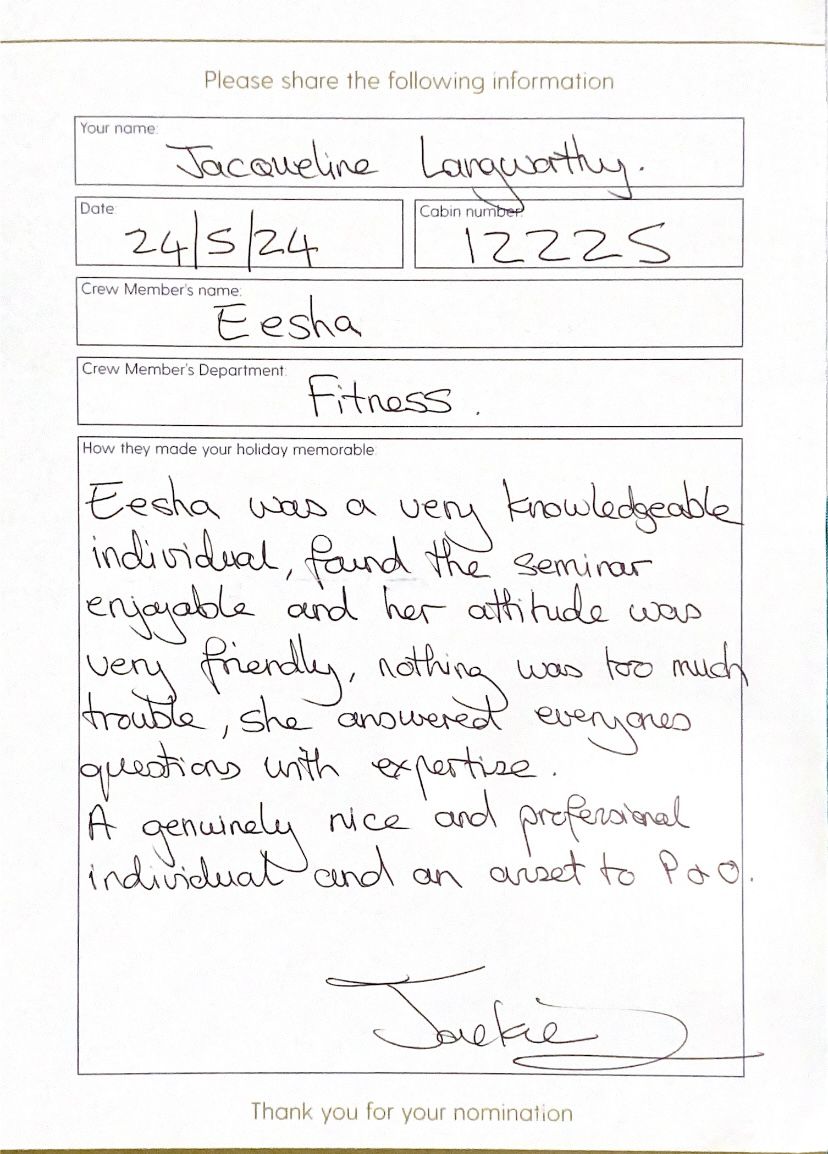 Please share the following information
Your name:
Jacqueline Langworthy.
Date
24/5/24
Cabin number:
12225
Crew Member's name:
Eesha
Crew Member's Department:
Fitness.
How they made your holiday memorable
Eesha was a very knowledgeable
individual, found the seminar
enjoyable and her attitude was
very friendly, nothing was too much
trouble, she answered everyones
questions with expertise.
A genuinely nice and professional
individual and an asset to P&O.
Jackie
Thank you for your nomination